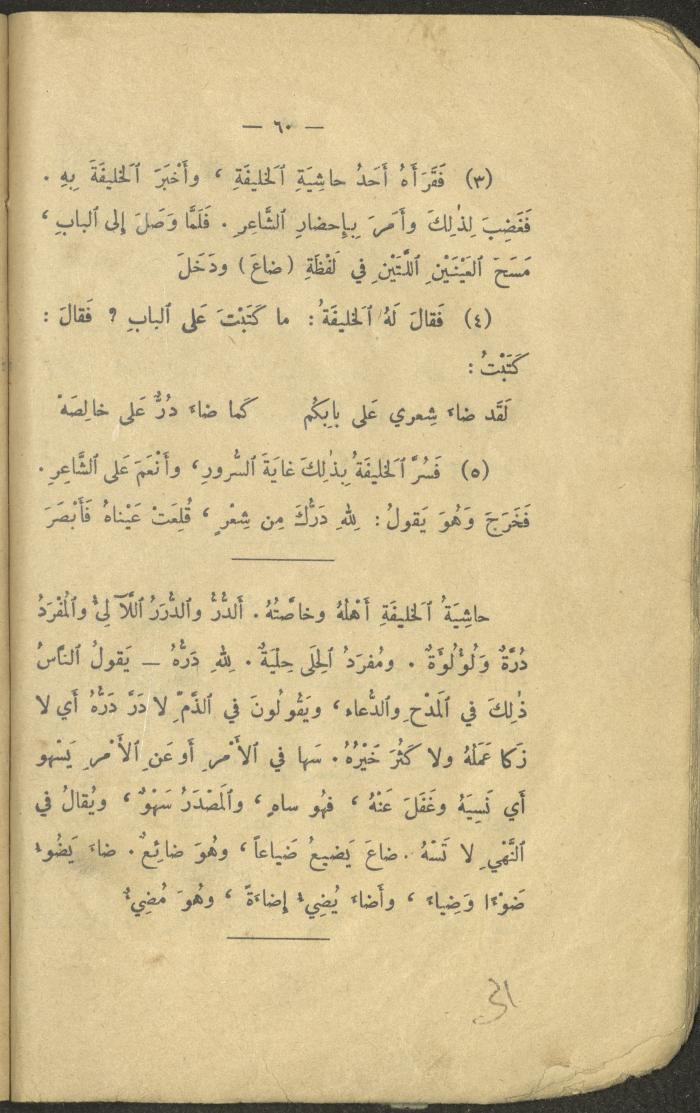 — ٦٠ —
(٣) فَقَرَأَهُ أَحَدُ حاشِيَةِ ٱلخَليفَةِ ، وأَخْبَرَ ٱلخَليفَةَ بِهِ .
فَغَضِبَ لِذٰلِكَ وأَمَرَ بِإِحضارِ ٱلشَّاعِرِ . فَلَمَّا وَصَلَ إِلى ٱلبابِ ،
مَسَحَ ٱلعَيْنَيْنِ ٱللَّتَيْنِ في لَفْظَةِ (ضاعَ) ودَخَلَ
(٤) فَقالَ لَهُ ٱلخَليفَةُ : ما كَتَبْتَ عَلى ٱلبابِ ؟ فَقالَ :
كَتَبْتُ :
لَقَد ضاءَ شِعري عَلى بابِكُم كَما ضاءَ دُرٌّ عَلى خالِصَهْ
(٥) فَسُرَّ ٱلخَليفَةُ بِذٰلِكَ غايَةَ ٱلسُّرورِ ، وأَنْعَمَ عَلى ٱلشَّاعِرِ .
فَخَرَجَ وَهُوَ يَقولُ : لِلّٰهِ دَرُّكَ مِن شِعْرٍ ، قُلِعَتْ عَيْناهُ فَأَبْصَرَ
حاشِيَةُ ٱلخَليفَةِ أَهْلُهُ وخاصَّتُهُ . أَلدُّرُّ والدُّرَرُ ٱللَّآلِئُ والمُفْرَدُ
دُرَّةٌ وَلُؤْلُؤَةٌ . ومُفرَدُ ٱلحِلَى حِلْيَةٌ . لِلّٰهِ دَرُّهُ — يَقولُ ٱلنَّاسُ
ذٰلِكَ في ٱلمَدْحِ والدُّعاءِ ، ويَقُولُونَ في ٱلذَّمِّ لا دَرَّ دَرُّهُ أَي لا
زَكا عَمَلُهُ ولا كَثُرَ خَيْرُهُ . سَها في ٱلأَمْرِ أَو عَنِ ٱلأَمْرِ يَسْهو
أَي نَسِيَهُ وغَفَلَ عَنْهُ ، فهُو ساهٍ ، والمَصْدَرُ سَهْوٌ ، ويُقالُ في
ٱلنَّهْيِ لا تَسْهُ . ضاعَ يَضيعُ ضَياعاً ، وهُوَ ضائِعٌ . ضاءَ يَضُوءُ
ضَوْءًا وَضِياءً ، وأَضاءَ يُضِيءُ إِضاءَةً ، وهُوَ مُضِيءٌ
31